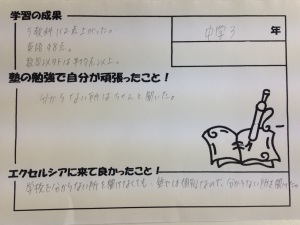 学習の成果
5教科112点上がった。
英語98点。
数学以外は90点以上。
中学3 年
塾の勉強で自分が頑張ったこと！
分からない所はちゃんと聞いた。
エクセルシアに来て良かったこと！
学校で分からない所を聞けなくても、塾では個別なので、分からない所を聞けた。